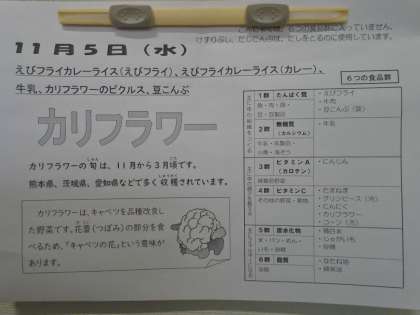 11月5日（水）
えびフライカレーライス（えびフライ）、えびフライカレーライス（カレー）、
牛乳、カリフラワーのピクルス、豆こんぶ
カリフラワー
カリフラワーの旬は、11月から3月頃です。
熊本県、茨城県、愛知県などで多く収穫されています。
カリフラワーは、キャベツを品種改良し
た野菜です。花蕾（つぼみ）の部分を食
べるため、「キャベツの花」という意味が
あります。
6つの食品群
1群 たんぱく質
・えびフライ
・牛肉
・豆こんぶ（豆）
2群 無機質
（カルシウム）
・牛乳
3群 ビタミンA
（カロテン）
・にんじん
4群 ビタミンC
・たまねぎ
・グリンピース（冷）
・にんにく
・カリフラワー
・コーン（冷）
5群 炭水化物
・精白米
・じゃがいも
・砂糖
6群 脂質
・なたね油